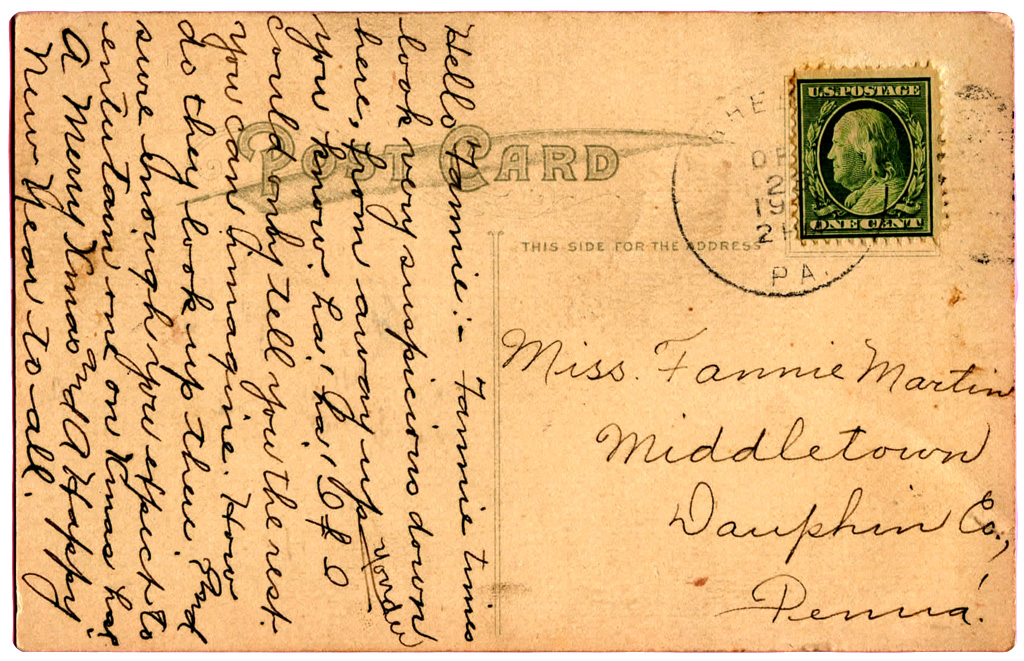 POST CARD
THIS SIDE FOR THE ADDRESS
U.S. POSTAGE
ONE CENT
PA.
Miss. Fannie Martin
Middletown
Dauphin Co.,
Penna.
Hello Fannie:- Fannie times
look very suspicious down
here, from away up yonder
you know, ha! ha! If I
could only tell you the rest.
you can imagine. How
do they look up there. And
sure enough you expect to
entertain one on Xmas ha!
A Merry Xmas and A Happy
New Year to-all.